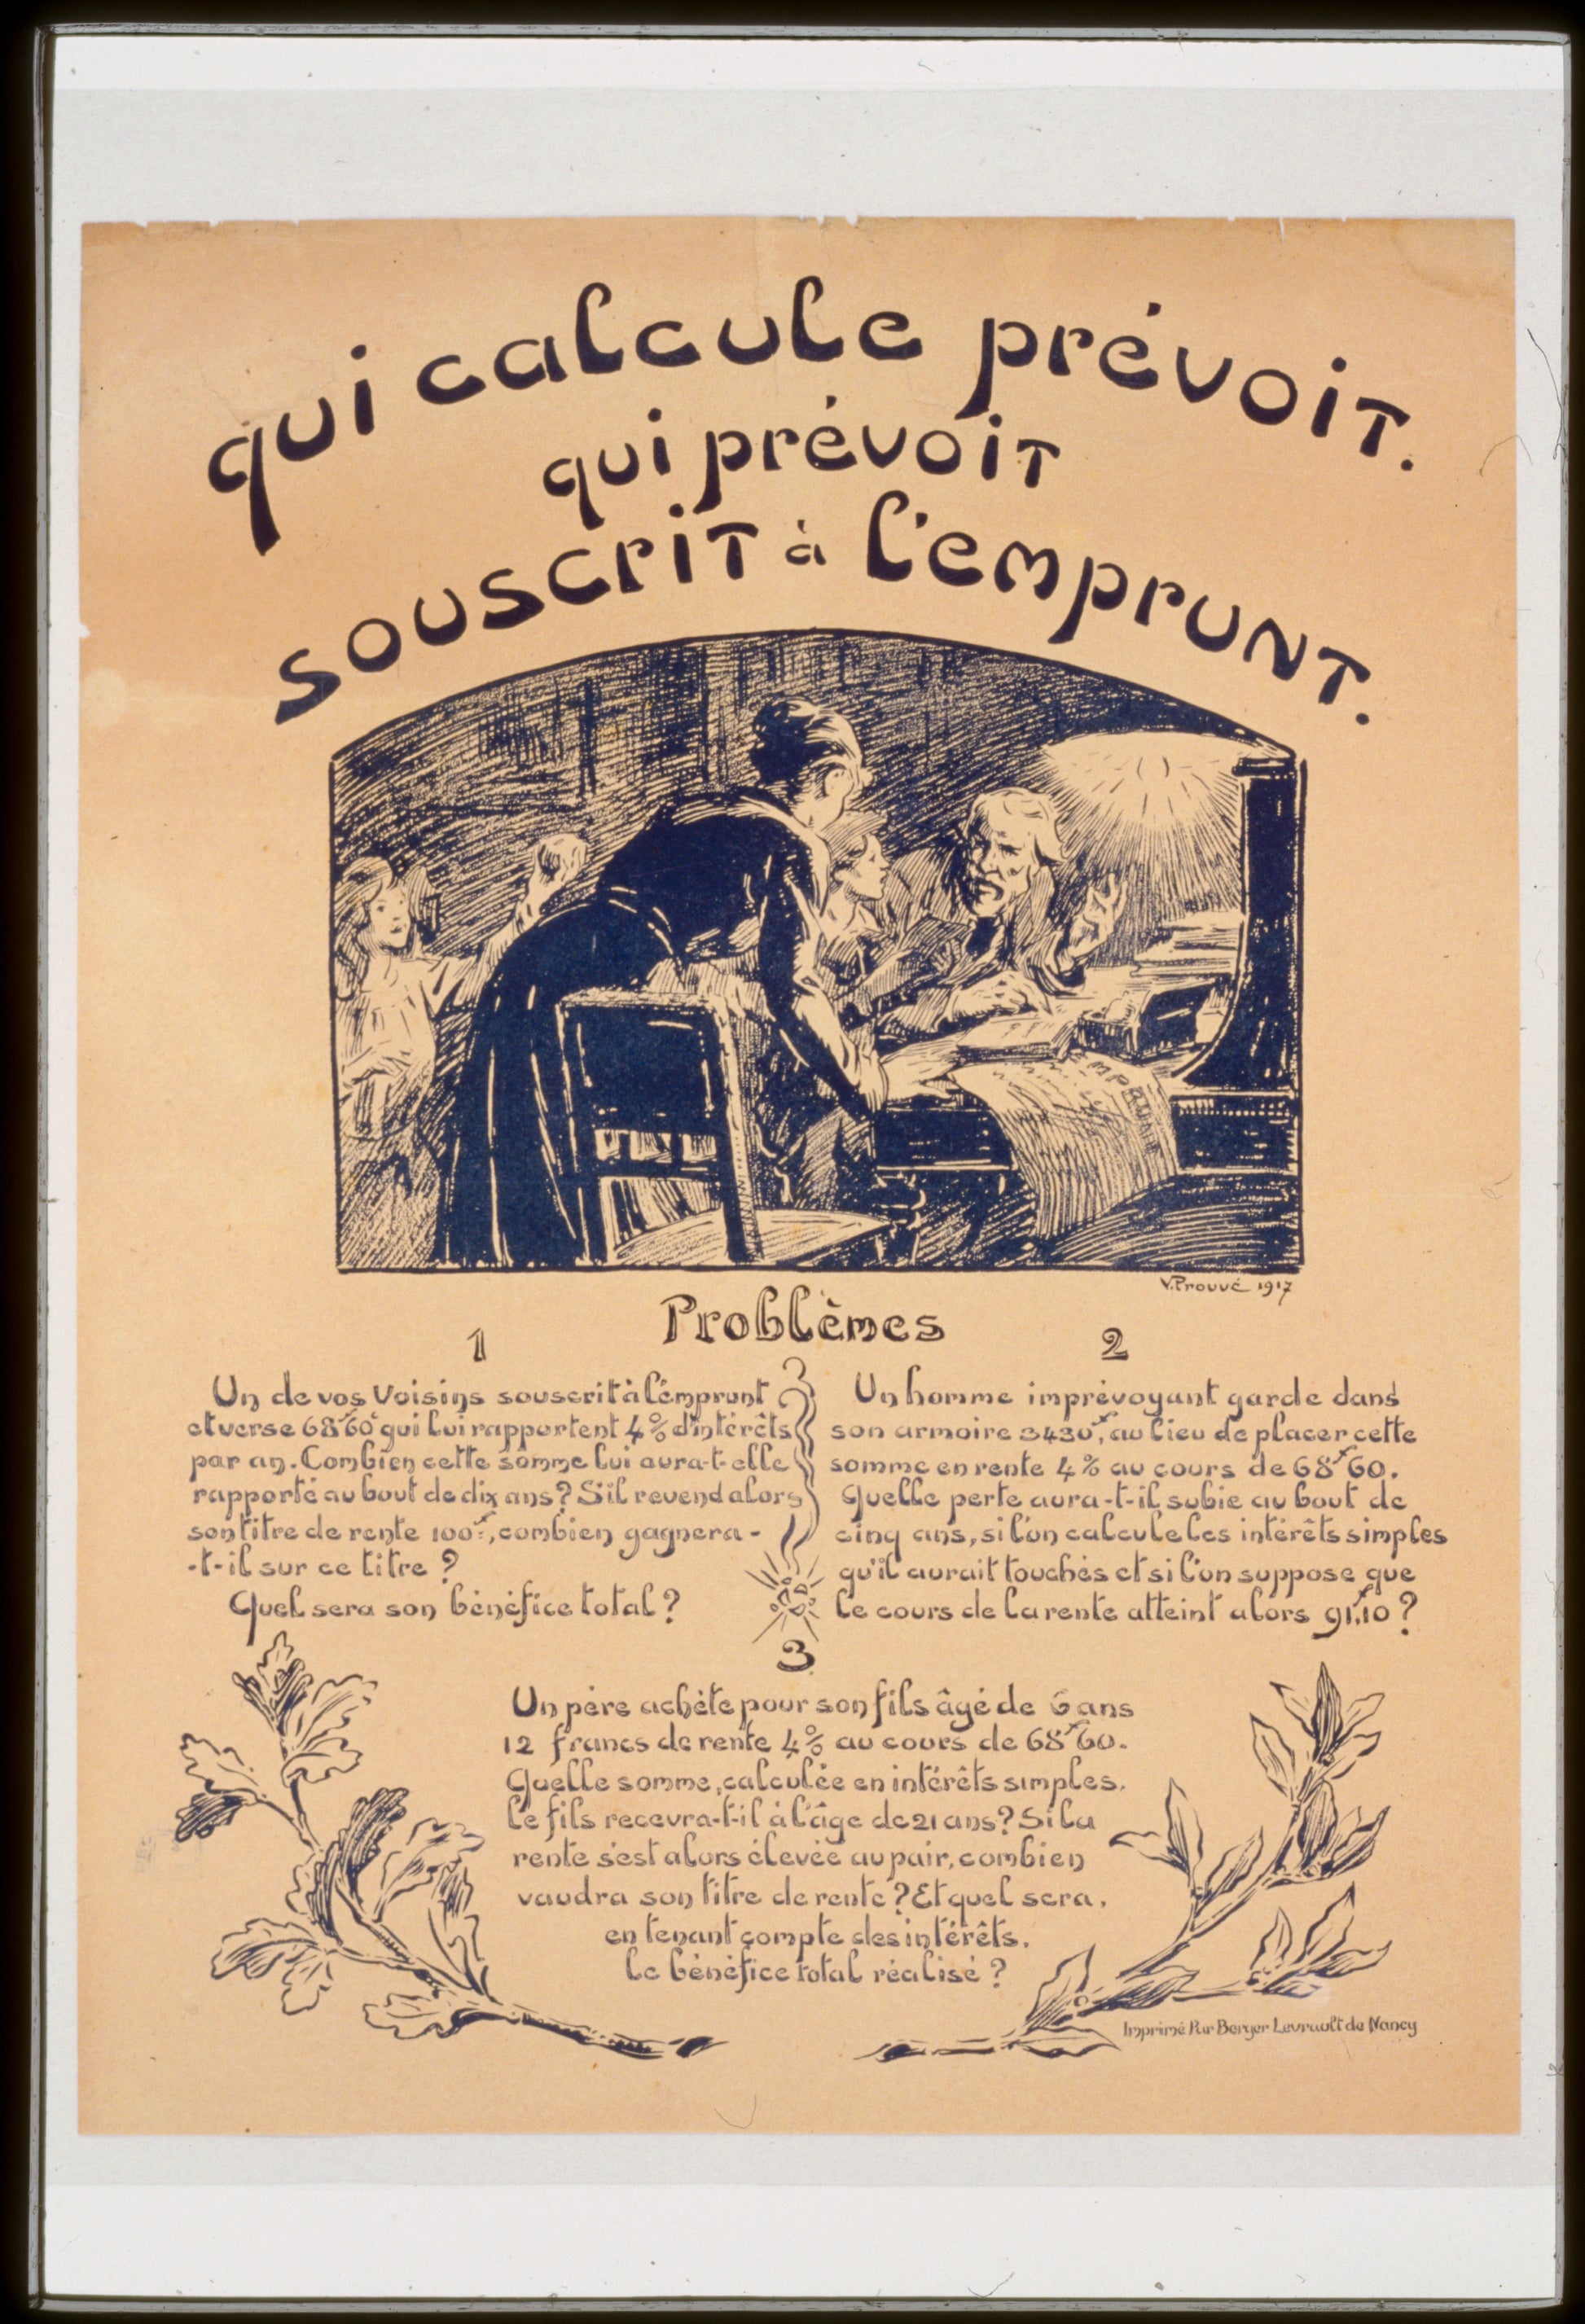 qui calcule prévoit.
qui prévoit
souscrit à l'emprunt.
MPRUNT
V. Prouvé 1917
Problèmes
1
Un de vos Voisins souscrit à l'emprunt
et verse 68f60c qui lui rapportent 4% d'intérêts
par an. Combien cette somme lui aura-t-elle
rapporté au bout de dix ans? S'il revend alors
son titre de rente 100f, combien gagnera-
-t-il sur ce titre?
Quel sera son bénéfice total?
2
Un homme imprévoyant garde dans
son armoire 3430f, au lieu de placer cette
somme en rente 4% au cours de 68f60.
Quelle perte aura-t-il subie au bout de
cinq ans, si l'on calcule les intérêts simples
qu'il aurait touchés et si l'on suppose que
le cours de la rente atteint alors 91f,10?
3
Un père achète pour son fils âgé de 6 ans
12 francs de rente 4% au cours de 68f60.
Quelle somme, calculée en intérêts simples,
le fils recevra-t-il à l'âge de 21 ans? Si la
rente s'est alors élevée au pair, combien
vaudra son titre de rente? Et quel sera,
en tenant compte des intérêts,
le bénéfice total réalisé?
Imprimé Par Berger Levrault de Nancy